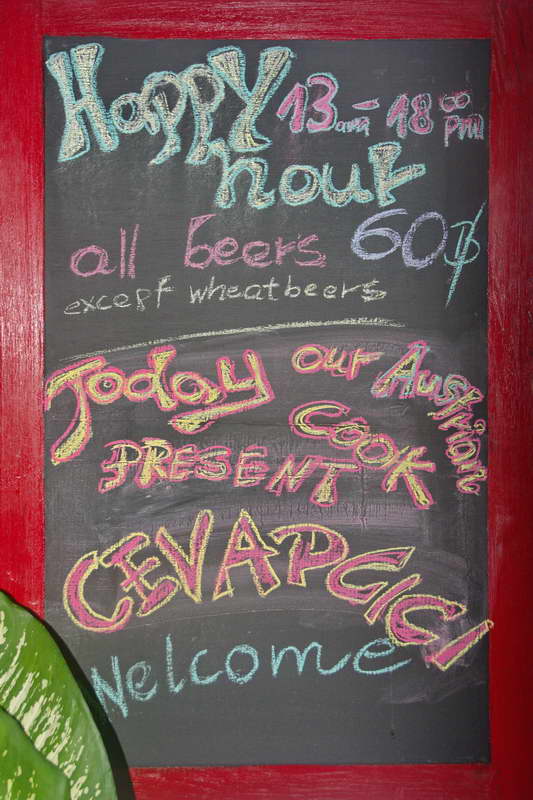 Happy 13.am - 18°° pm
hour
all beers 60฿
except wheatbeers
Today our Austrian
COOK
PRESENT
CEVAPCICI
Welcome